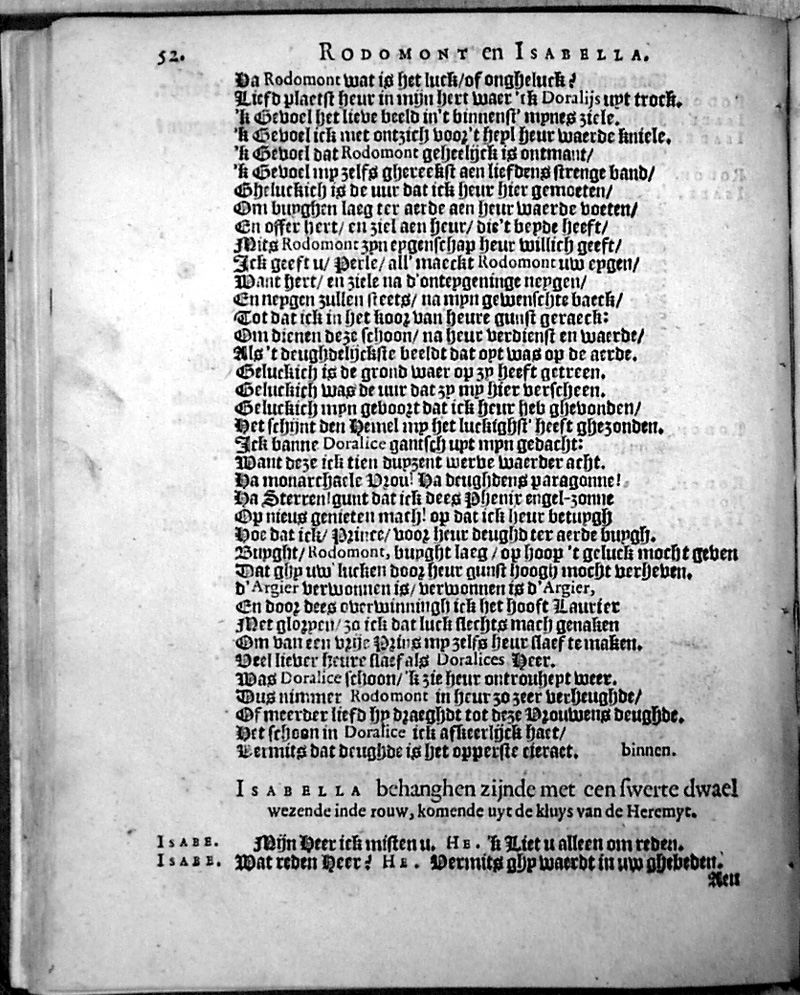 52. RODOMONT en ISABELLA.
Ha Rodomont wat is het luck/of ongheluck?
Liefd plaetst heur in mijn hert waer 'ck Doralijs uyt trock.
'k Gevoel het lieve beeld in't binnenst' mynes ziele.
'k Gevoel ick met ontzich voor't heyl heur waerde kniele.
'k Gevoel dat Rodomont geheelijck is ontmant/
'k Gevoel my zelfs ghereckst aen liefdens strenge band/
Gheluckich is de uur dat ick heur hier gemoeten/
Om buyghen laeg ter aerde aen heur waerde voeten/
En offer hert/ en ziel aen heur/ die't beyde heeft/
Mits Rodomont zyn eygenschap heur willich geeft/
Ick geeft u/ Perle/ all' maeckt Rodomont uw eygen/
Want hert/ en ziele na d'onteygeninge neygen/
En neygen zullen steets/ na myn gewenschte baeck/
Tot dat ick in het koor van heure gunst geraeck:
Om dienen deze schoon/ na heur verdienst en waerde/
Als 't deughdelijckste beeldt dat oyt was op de aerde.
Geluckich is de grond waer op zy heeft getreen.
Geluckich was de uur dat zy my hier verscheen.
Geluckich myn geboort dat ick heur heb ghevonden/
Het schijnt den Hemel my het luckighst' heeft ghezonden.
Ick banne Doralice gantsch uyt myn gedacht:
Want deze ick tien duyzent werve waerder acht.
Ha monarchaele Vrou! Ha deughdens paragonne!
Ha Sterren! gunt dat ick dees Phenix engel-zonne
Op nieus genieten mach! op dat ick heur betuygh
Hoe dat ick/ Prince/ voor heur deughd ter aerde buygh.
Buyght/ Rodomont, buyght laeg/ op hoop 't geluck mocht geven
Dat ghy uw' lucken door heur gunst hoogh mocht verheven.
d'Argier verwonnen is/ verwonnen is d'Argier,
En door dees overwinningh ick het hooft Laurier
Met gloryen/ zo ick dat luck slechts mach genaken
Om van een vrije Prins my zelfs heur slaef te maken.
Veel liever heure slaef als Doralices Heer.
Was Doralice schoon/ 'k zie heur ontrouheyt weer.
Dus nimmer Rodomont in heur zo zeer verheughde/
Of meerder liefd hy draeghdt tot deze Vrouwens deughde.
Het schoon in Doralice ick afkeerlijck haet/
Vermits dat deughde is het opperste cieraet. binnen.
ISABELLA behanghen zijnde met een swerte dwael
wezende inde rouw, komende uyt de kluys van de Heremyt.
ISABE. Mijn Heer ick misten u. HE. 'k Liet u alleen om reden.
ISABE. Wat reden Heer? HE. Vermits ghy waerdt in uw ghebeden.
Aen